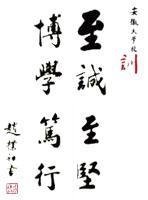 安徽大学校
训
至誠至堅
博學篤行
趙樸初書